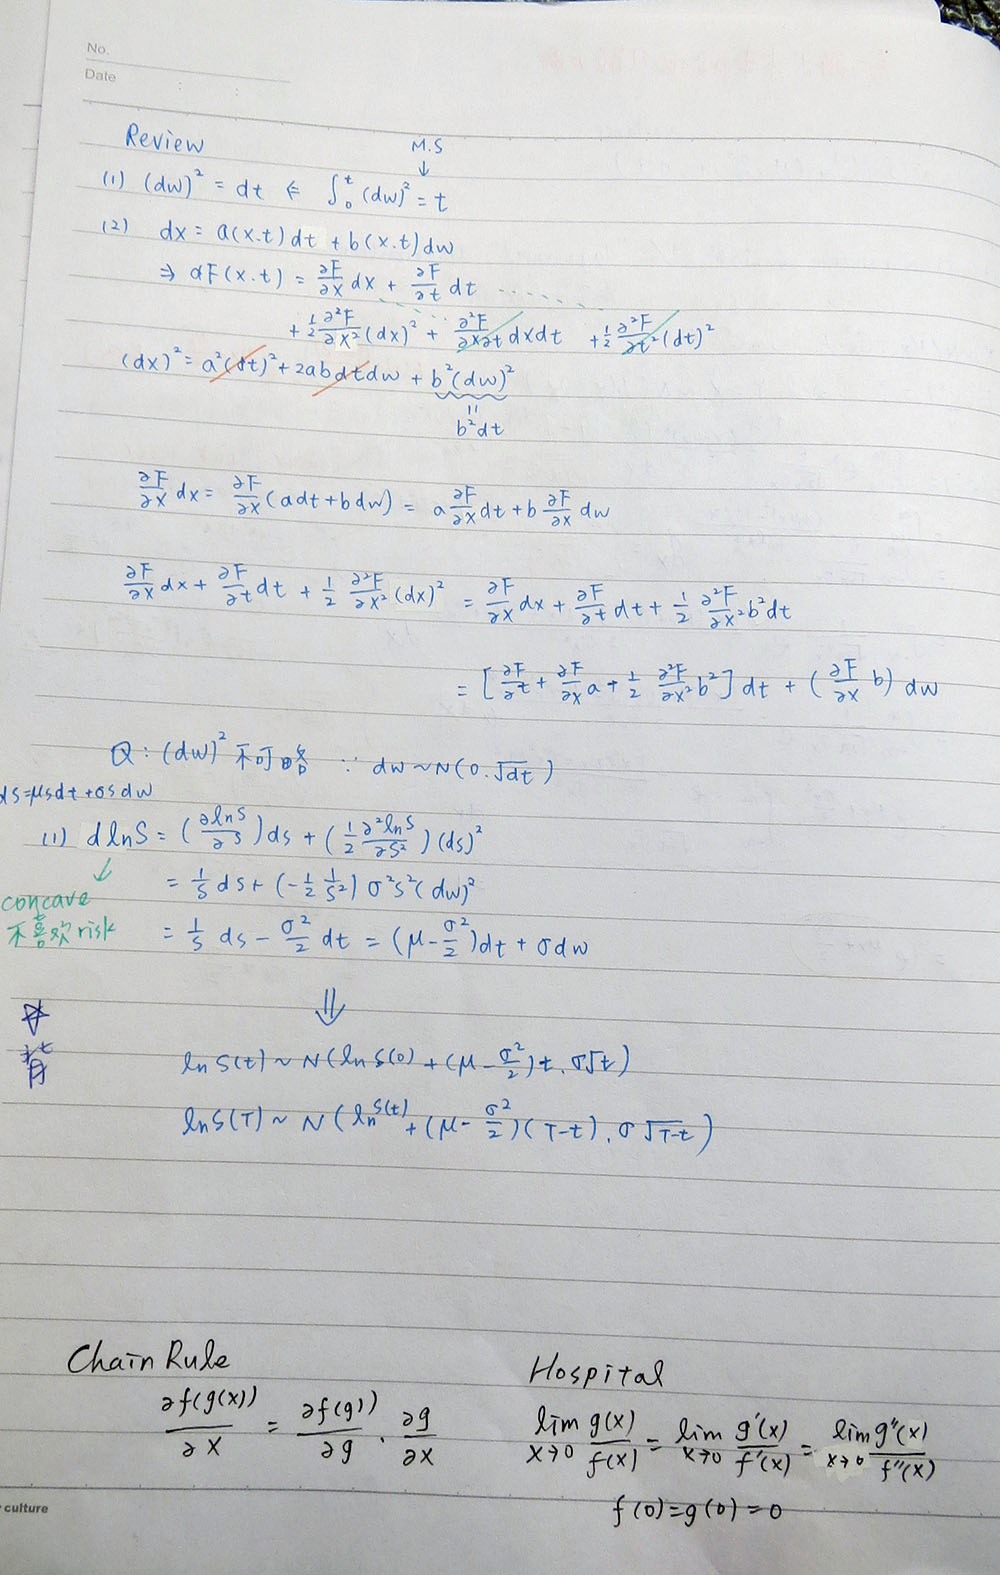 No.
Date
Review
M.S
↓
(1) (dw)² = dt ⇐ ∫₀ᵗ (dw)² = t
(2) dx = a(x.t)dt + b(x.t)dw
⇒ dF(x.t) = ∂F/∂x dx + ∂F/∂t dt
+ ½ ∂²F/∂x² (dx)² + ∂²F/∂x∂t dxdt + ½ ∂²F/∂t² (dt)²
(dx)² = a²(dt)² + 2abdtdw + b²(dw)²
॥
b²dt
∂F/∂x dx = ∂F/∂x (adt + bdw) = a ∂F/∂x dt + b ∂F/∂x dw
∂F/∂x dx + ∂F/∂t dt + ½ ∂²F/∂x² (dx)² = ∂F/∂x dx + ∂F/∂t dt + ½ ∂²F/∂x² b²dt
= [∂F/∂t + ∂F/∂x a + ½ ∂²F/∂x² b²] dt + (∂F/∂x b) dw
Q : (dw)² 不可略 ∵ dw ~ N(0.√dt)
ds=μsdt+σsdw
(1) dlnS = (∂lnS/∂S) ds + (½ ∂²lnS/∂S²) (ds)²
↓
= 1/S ds + (-½ 1/S²) σ²S²(dw)²
concave
不喜欢risk
= 1/S ds - σ²/2 dt = (μ - σ²/2)dt + σdw
⇓
☆
背
lnS(t) ~ N(lnS(0) + (μ - σ²/2)t, σ√t)
lnS(T) ~ N(lnS(t) + (μ - σ²/2)(T-t), σ√T-t)
Chain Rule
∂f(g(x))/∂x = ∂f(g))/∂g · ∂g/∂x
Hospital
lim x→0 g(x)/f(x) = lim x→0 g'(x)/f'(x) = lim x→0 g''(x)/f''(x)
f(0)=g(0)=0
culture